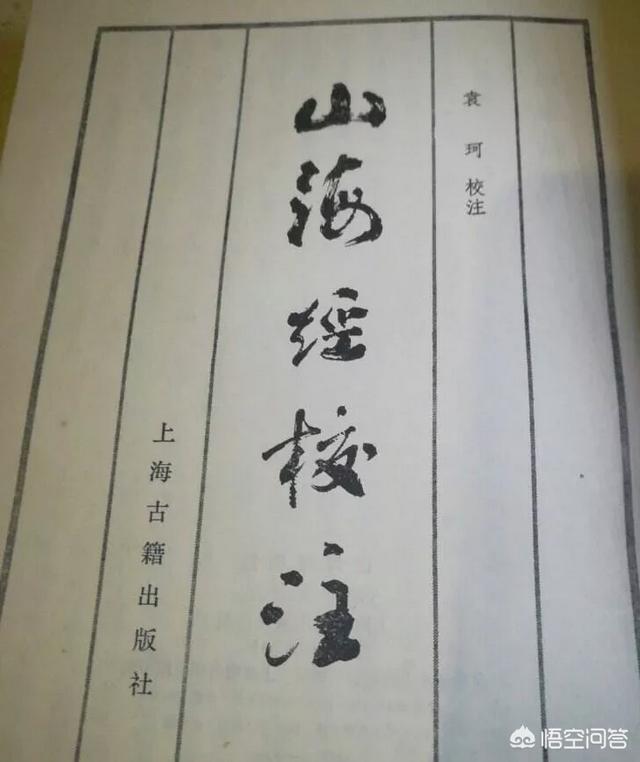 袁珂校注
山海經校注
上海古籍出版社
悟空问答